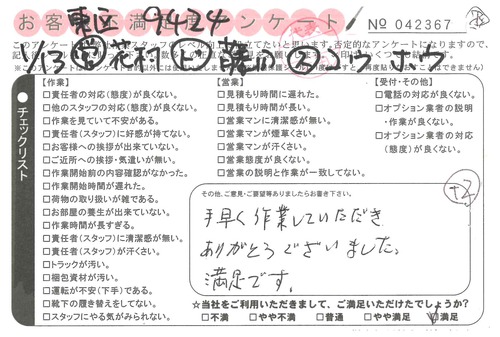 お客様不満足度アンケート
No 042367
東区 9424
1/13
花村
【作業】
□責任者の対応(態度)が良くない。
□他のスタッフの対応(態度)が良くない。
□作業を見ていて不安がある。
□責任者(スタッフ)に好感が持てない。
□お客様への挨拶が出来ていない。
□ご近所への挨拶・気遣いが無い。
□作業開始前の内容確認がなかった。
□作業開始時間が遅れた。
□荷物の取り扱いが雑である。
□お部屋の養生が出来ていない。
□作業時間が長すぎる。
□責任者(スタッフ)に清潔感が無い。
□責任者(スタッフ)が汗くさい。
□トラックが汚い。
□梱包資材が汚い。
□運転が不安(下手)である。
□靴下の履き替えをしてない。
□スタッフにやる気がみられない。
【営業】
□見積もり時間に遅れた。
□見積もり時間が長い。
□営業マンに清潔感が無い。
□営業マンが煙草くさい。
□営業マンが汗くさい。
□営業態度が良くない。
□営業の説明と作業が一致してない。
【受付・その他】
□電話の対応が良くない。
□オプション業者の説明
・作業が良くない。
□オプション業者の対応
(態度)が良くない。
チェックリスト
その他、ご意見・ご要望等ありましたらお書き下さい。
手早く作業していただき
ありがとうございました。
満足です。
☆当社をご利用いただきまして、ご満足いただけたでしょうか?
□不満 □やや不満 □普通 □やや満足 □満足